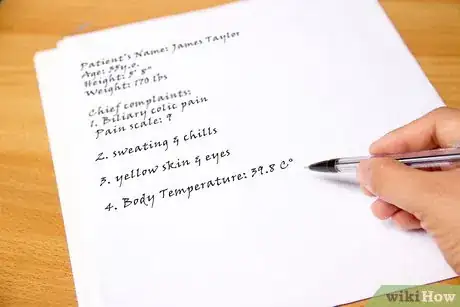 Patient's Name: James Taylor
Age: 35y.o.
Height: 5' 8"
Weight: 170 lbs
Chief complaints:
1. Biliary colic pain
Pain scale: 9
2. sweating & chills
3. yellow skin & eyes
4. Body Temperature: 39.8 C°
wikiHow